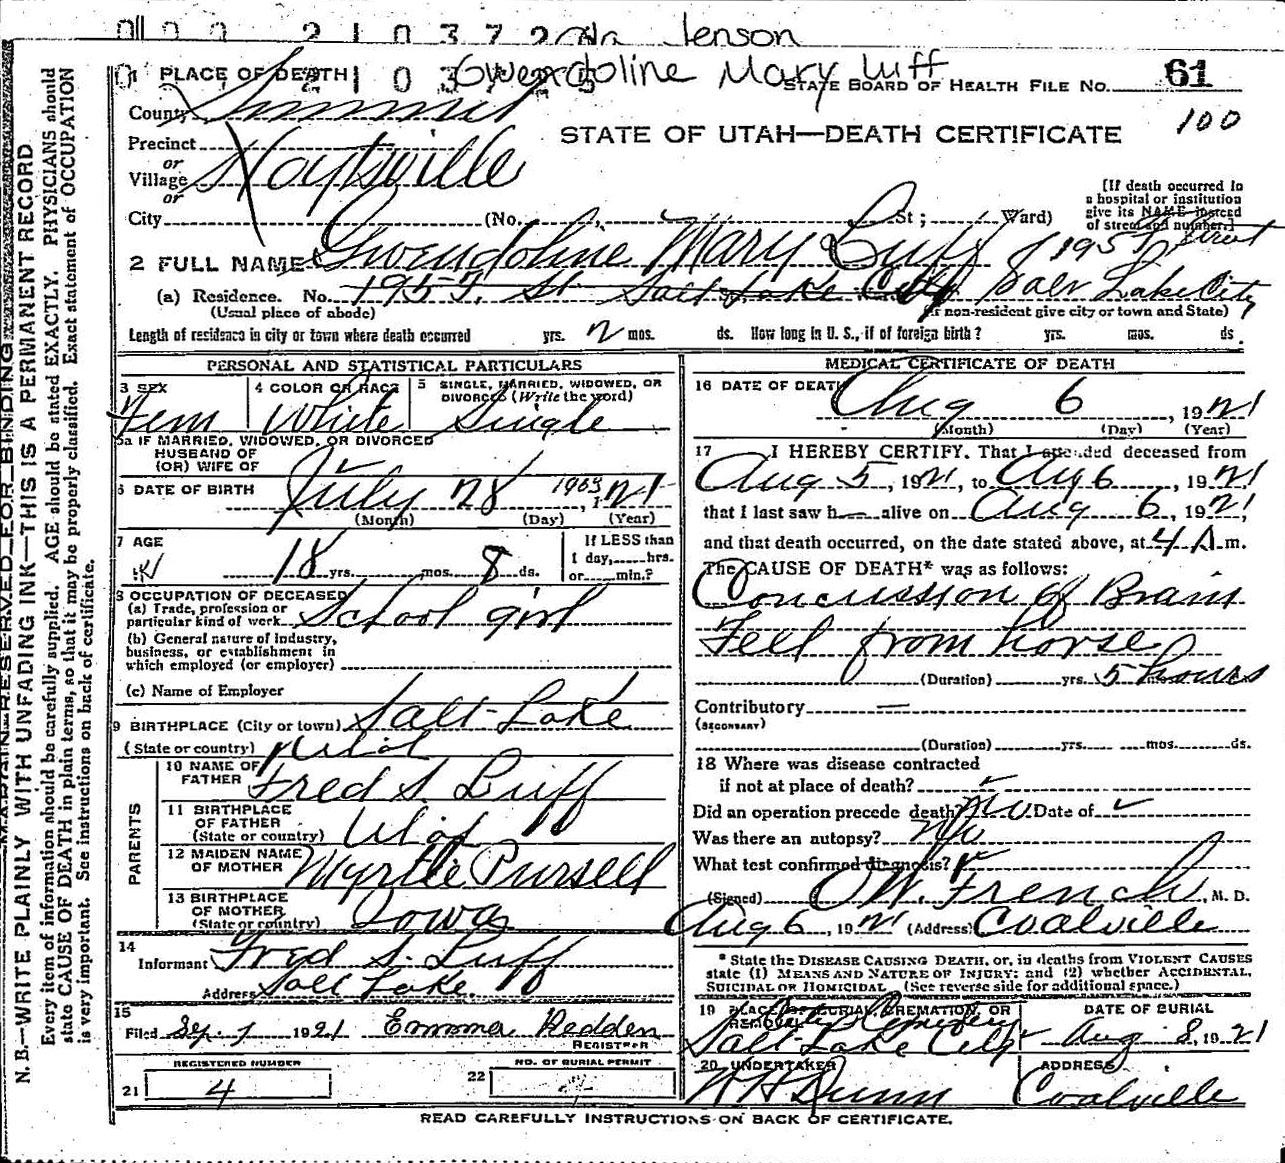 0 0 0 2 1 0 3 7 2 Jenson
Gwendoline Mary Luff
1 PLACE OF DEATH
STATE BOARD OF HEALTH FILE No. 61
100
County Summit
STATE OF UTAH—DEATH CERTIFICATE
Precinct
or
Village Hoytsville
or
City (No. St; Ward)
[If death occurred in
a hospital or institution
give its NAME instead
of street and number.]
2 FULL NAME Gwendoline Mary Luff
(a) Residence. No. 195 J. St Salt Lake City
195 J Street
Salt Lake City
(Usual place of abode)
(If non-resident give city or town and State)
Length of residence in city or town where death occurred yrs. mos. ds. How long in U. S., if of foreign birth? yrs. mos. ds.
PERSONAL AND STATISTICAL PARTICULARS
3 SEX
Fem
4 COLOR OR RACE
White
5 SINGLE, MARRIED, WIDOWED, OR
DIVORCED (Write the word)
Single
5a IF MARRIED, WIDOWED, OR DIVORCED
HUSBAND OF
(OR) WIFE OF
6 DATE OF BIRTH July 28 1903
(Month) (Day) (Year)
7 AGE
18 yrs. mos. 8 ds.
If LESS than
1 day, hrs.
or min.?
8 OCCUPATION OF DECEASED
(a) Trade, profession or
particular kind of work School girl
(b) General nature of industry,
business, or establishment in
which employed (or employer)
(c) Name of Employer
9 BIRTHPLACE (City or town) Salt Lake
(State or country) Utah
PARENTS
10 NAME OF
FATHER Fred S. Luff
11 BIRTHPLACE
OF FATHER
(State or country) Utah
12 MAIDEN NAME
OF MOTHER Myrtle Pursell
13 BIRTHPLACE
OF MOTHER
(State or country) Iowa
14
Informant Fred S. Luff
Address Salt Lake
15
Filed Sep. 1 1921 Emma Hedden
REGISTRAR
REGISTERED NUMBER
21 4
NO. OF BURIAL PERMIT
22
MEDICAL CERTIFICATE OF DEATH
16 DATE OF DEATH
Aug 6, 1921
(Month) (Day) (Year)
17 I HEREBY CERTIFY, That I attended deceased from
Aug 5, 1921, to Aug 6, 1921
that I last saw h alive on Aug 6, 1921,
and that death occurred, on the date stated above, at 4 A. m.
The CAUSE OF DEATH* was as follows:
Concussion of Brain
Fell from horse
(Duration) yrs. 5 hours
Contributory —
(SECONDARY)
(Duration) yrs. mos. ds.
18 Where was disease contracted
if not at place of death?
Did an operation precede death? No. Date of
Was there an autopsy? No
What test confirmed diagnosis?
(Signed) W. French, M. D.
Aug 6, 1921 (Address) Coalville
* State the DISEASE CAUSING DEATH, or, in deaths from VIOLENT CAUSES
state (1) MEANS AND NATURE OF INJURY; and (2) whether ACCIDENTAL,
SUICIDAL OR HOMICIDAL. (See reverse side for additional space.)
19 PLACE OF BURIAL, CREMATION, OR
REMOVAL
City Cemetery
Salt Lake City
DATE OF BURIAL
Aug 8, 1921
20 UNDERTAKER
W H Dunn
ADDRESS
Coalville
READ CAREFULLY INSTRUCTIONS ON BACK OF CERTIFICATE.
MARGIN RESERVED FOR BINDING
N. B.—WRITE PLAINLY WITH UNFADING INK—THIS IS A PERMANENT RECORD
Every item of information should be carefully supplied. AGE should be stated EXACTLY. PHYSICIANS should
state CAUSE OF DEATH in plain terms, so that it may be properly classified. Exact statement of OCCUPATION
is very important. See instructions on back of certificate.